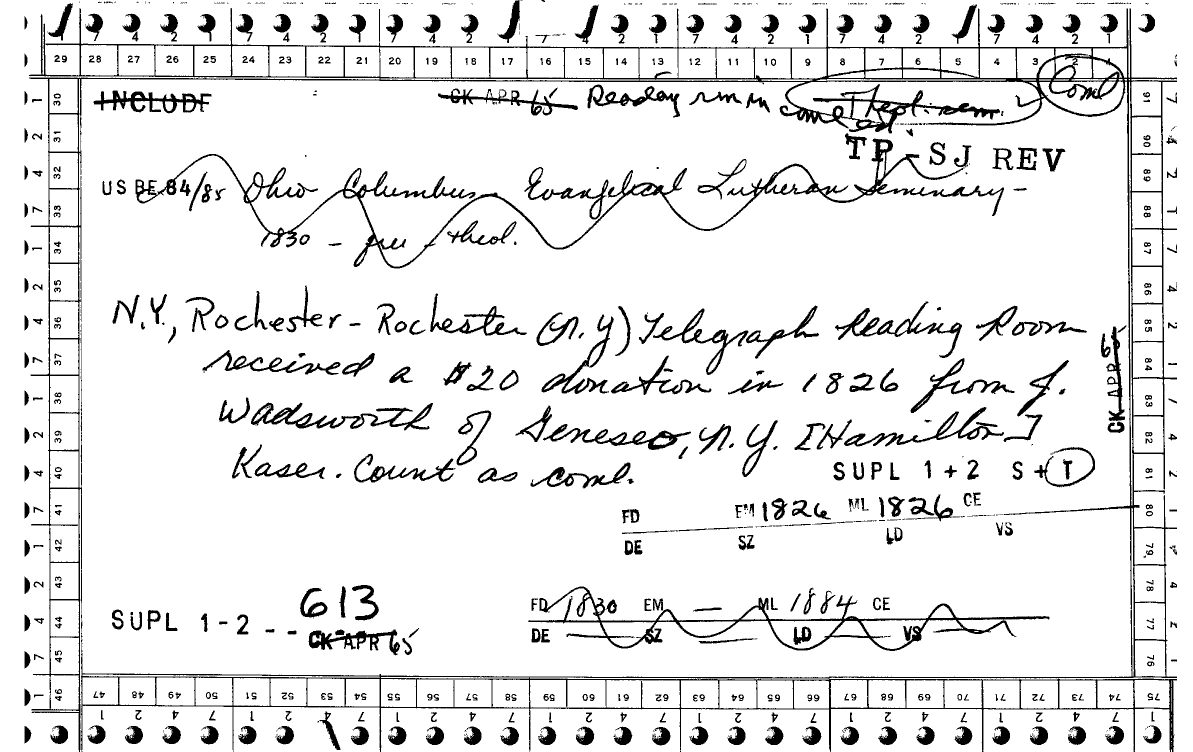 7 4 2 1 7 4 2 1 7 4 2 1 7 4 2 1 7 4 2 1 7 4 2 1 7 4 2 1
29 28 27 26 25 24 23 22 21 20 19 18 17 16 15 14 13 12 11 10 9 8 7 6 5 4 3 2 1
INCLUDE CK APR 65 Reading rm in Theol. sem. Coml
TP - SJ REV
US BE 84/85 Ohio Columbus Evangelical Lutheran Seminary -
1830 - free - theol.
N.Y., Rochester - Rochester (N.Y.) Telegraph Reading Room
received a $20 donation in 1826 from J.
Wadsworth of Geneseo, N.Y. [Hamilton]
Kaser. Count as coml.
SUPL 1+2 S+T
FD EM 1826 ML 1826 CE
DE SZ LD VS
CK APR 65
613
SUPL 1-2 --
CK APR 65
FD 1830 EM — ML 1884 CE
DE — SZ — LD — VS —
30 31 32 33 34 35 36 37 38 39 40 41 42 43 44 45 46
91 90 89 88 87 86 85 84 83 82 81 80 79 78 77 76 75
47 48 49 50 51 52 53 54 55 56 57 58 59 60 61 62 63 64 65 66 67 68 69 70 71 72 73 74
1 2 4 7 1 2 4 7 1 2 4 7 1 2 4 7 1 2 4 7 1 2 4 7 1 2 4 7